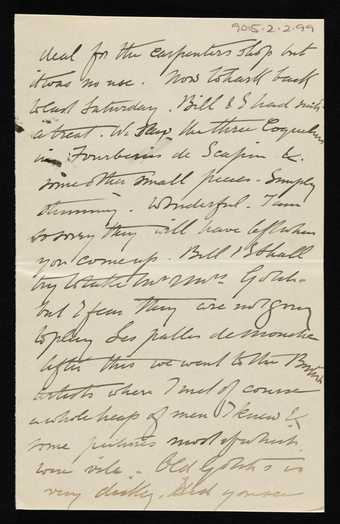 9015.2.2.99
deal for the carpenters shop but
it was no use. Now to hark back
to last Saturday. Bill & I had such
a treat. We saw the three Coquelins
in Fourberies de Scapin &c.
some other small pieces. Simply
stunning. Wonderful. I am
so sorry they will have left when
you come up. Bill & I shall
try to take Mr & Mrs
but I fear they are not going
to play Les
After this we went to the British
artists where I met of course
a whole heap of men I knew &
some pictures most of which
were vile. Old is
very dicky. Did you see